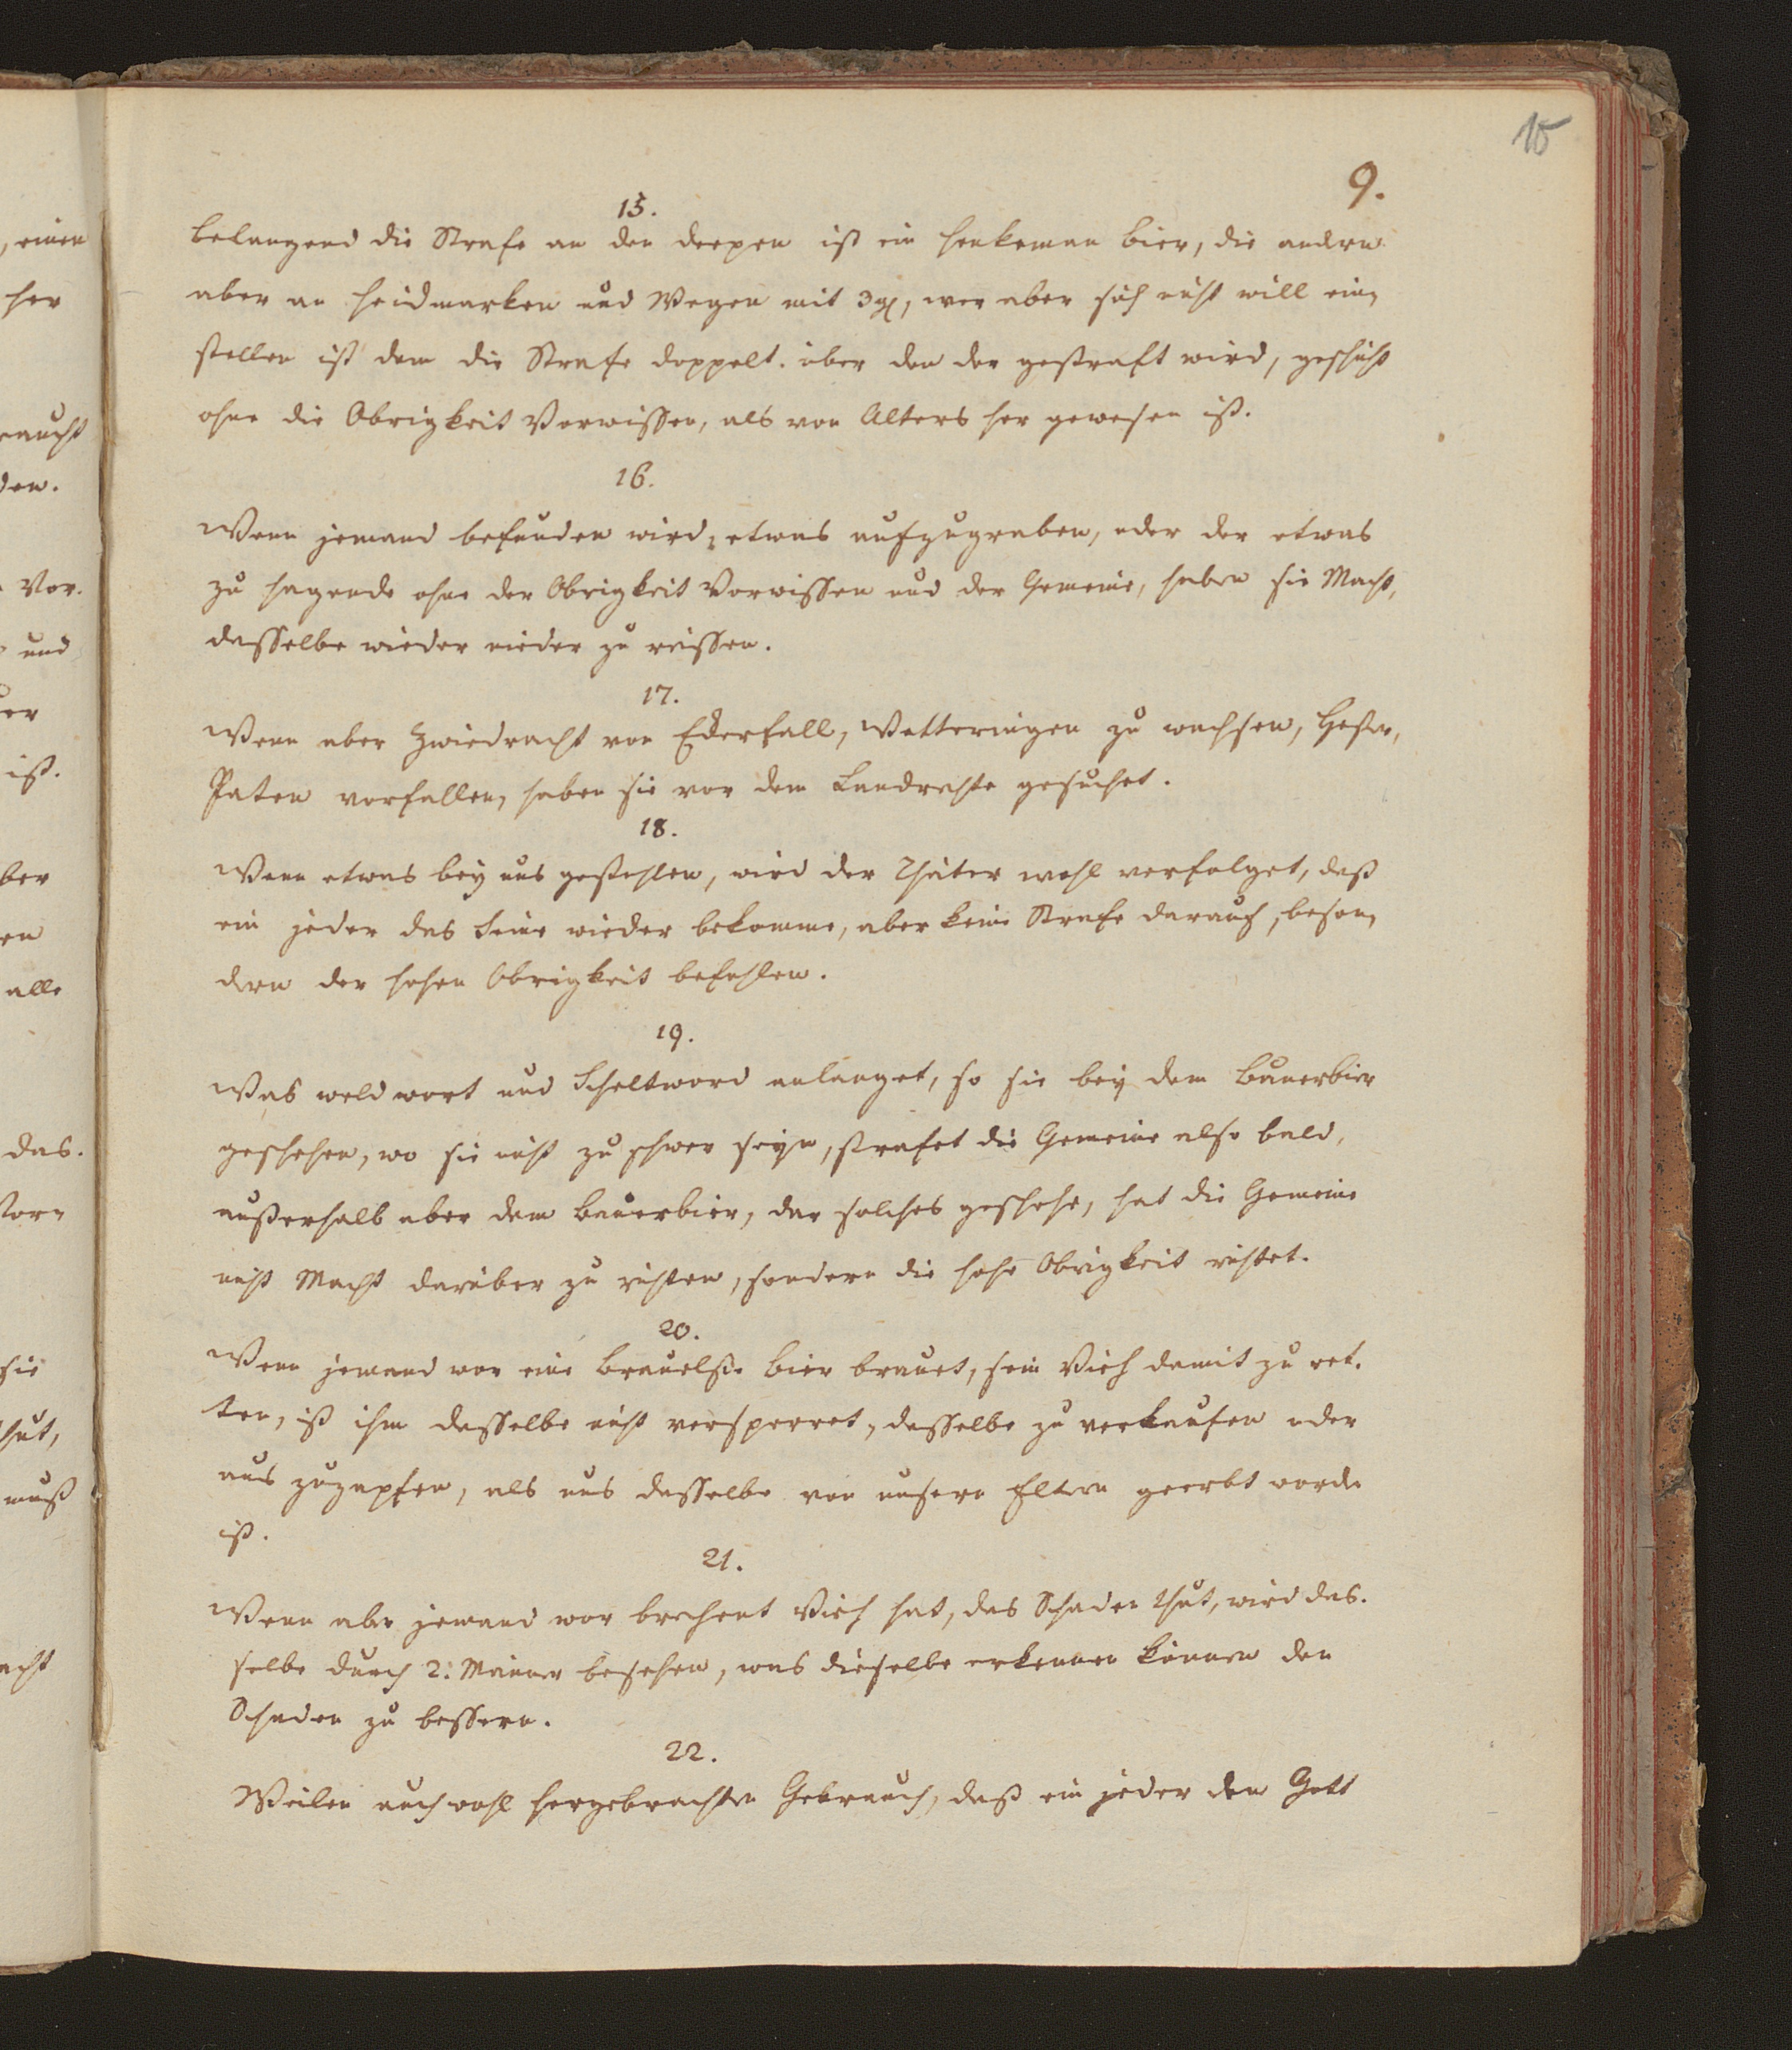 15
9.
15.
belangend die Strafe an den deepen ist ein henkeman bier, die andern
aber an heidmarken und Wegen mit 3 gl, wer aber sich nicht will ein,
stellen ist dem die Strafe doppelt. über den der gestraft wird, geschicht
ohne die Obrigkeit Vorwissen, als von Alters her gewesen ist.
16.
Wenn jemand befunden wird, etwas aufzugraben, oder der etwas
zu hagende ohne der Obrigkeit Vorwissen und der Gemeine, haben sie Macht,
dasselbe wieder nieder zu reissen.
17.
Wenn aber Zwiedracht von Ederfall, Watteringen zu wachsen,
Paten vorfallen, haben sie vor dem Landrechte gesuchet.
18.
Wenn etwas bey uns gestohlen, wird der Thäter wohl verfolget, daß
ein jeder das Seine wieder bekomme, aber keine Strafe darauf, beson,
dern der hohen Obrigkeit befohlen.
19.
Was weld wort und Scheltword anlanget, so sie bey dem Bauerbier
geschehen, wo sie nicht zu schwer seyn, strafet die Gemeine also bald,
außerhalb aber dem Bauerbier, dar solches geschehe, hat die Gemeine
nicht Macht darüber zu richten, sondern die hohe Obrigkeit richtet.
20.
Wenn jemand wor eine Bier brauet, sein Vieh damit zu ret.
ten, ist ihm dasselbe nicht versperret, dasselbe zu verkaufen oder
aus zuzapfen, als uns dasselbe von unsern Eltern geerbt worde
ist.
21.
Wenn aber jemand wor brechent Vieh hat, das Schaden thut, wird das.
selbe durch 2. Männer besehen, was dieselbe erkennen können den
Schaden zu bessern.
22.
Weilen auch wohl hergebrachten Gebrauch, daß ein jeder den Gott